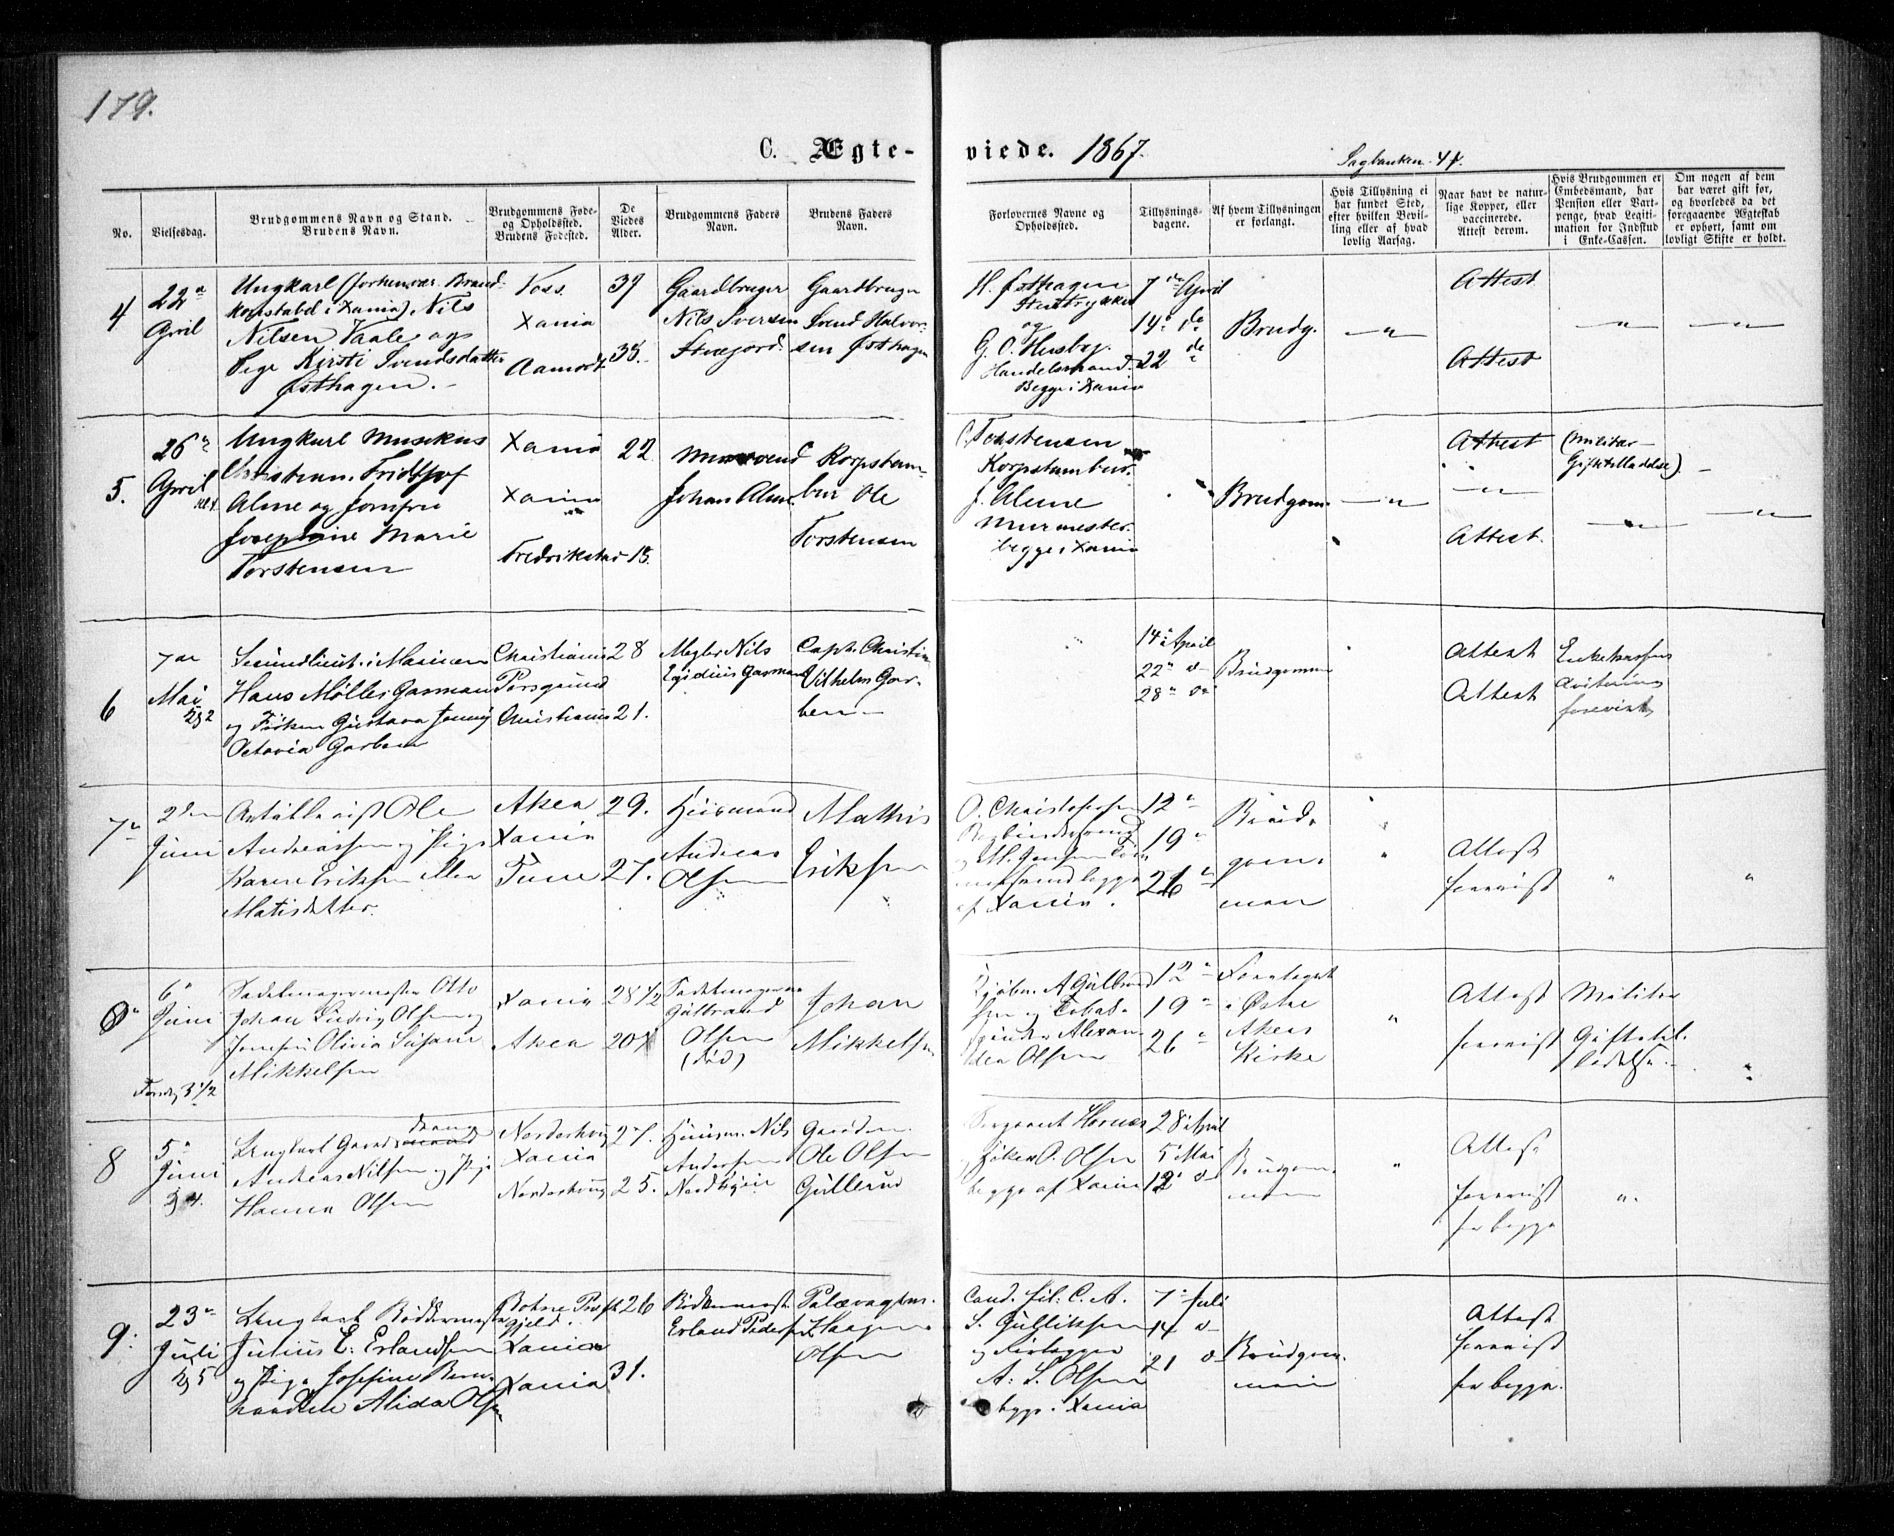 179.
C. Ægte-
viede. 1867.
No.
Vielsesdag.
Brudgommens Navn og Stand.
Brudens Navn.
Brudgommens Føde-
og Opholdssted.
Brudens Fødested.
De
Viedes
Alder.
Brudgommens Faders
Navn.
Brudens Faders
Navn.
Forlovernes Navne og
Opholdssted.
Tillysnings-
dagene.
Af hvem Tillysningen
er forlangt.
Hvis Tillysning ei
har fundet Sted,
efter hvilken Bevil-
ling eller af hvad
lovlig Aarsag.
Naar havt de natur-
lige Kopper, eller
vaccinerede.
Attest derom.
Hvis Brudgommen er
Embedsmand, har
Pension eller Vart-
penge, hvad Legiti-
mation for Indskud
i Enke-Cassen.
Om nogen af dem
har været gift før,
og hvorledes da det
foregaaende Ægteskab
er ophørt, samt om
lovligt Skifte er holdt.
4
22
April
Ungkarl (forhenvær. Brand-
konstabel i Xania) Nils
Nilsen Vaale og
Pige Kirsti Svendsdatter
Østhagen.
Voss
Xania
Aamodt
37
35
Gaardbruger
Nils Iversen
Gaardbruger
Svend Halvor-
sen Østhagen
H. Østhagen
Stentrykker
og
G. O. Huseby
Handelsmand
Begge i Xania
7 April
14
22
Brudg.
Attest
Attest
5.
26
April
Ungkarl Musikus
Christian Fridtjof
Alme og Jomfru
Josephine Marie
Torstensen
Xania
Xania
Fredrikstad
22
18.
Johan Alme
Korpstam-
bur Ole
Torstensen
Torstensen
Korpstambur.
J. Alme
Murmester.
begge i Xania
Brudgom
Attest
Attest.
(Militær-
Giftetilladelse)
6
7
Mai
Kl 2
Secundlieut. i Marinen
Hans Møller Garman
og Frøken Gustava Jenny
Octavia Garben
Christiania
Porsgrund
Christiania
28
21.
Megler Nils
Egidius Garman
Capt. Christian
Vilhelm Gar-
ben
14 April
22
28
Brudgommen
Attest
Attest
7
2
Juni
Ole
Andreassen og Pige
Karen Eriksen
Matisdatter.
Aker
Xania
Tune
29.
27.
Huusmand
Andreas
Olsen
Mathis
Eriksen
O. Christophersen
begge
af Xania.
12
19
26
Brud-
gom-
men
Attest
forevist
6
Juni
Sadelmagermester Otto
Johan Ludvig Olsen og
Jomfru Olivia Susanne
Mikkelsen
Xania
Aker
28 1/2
20
Sadelmager
Gulbrand
Olsen
(død)
Johan
Mikkelsen
Olsen
12
19
26
Foretaget
i Østre
Akers
Kirke
Attest
forevist
Militær
Giftetil-
ladelse.
8
5
Juni
Kl 4.
Ungkarl Gaards
Andreas Nilsen og Pige
Hanna Olsen
Norderhoug
Xania
Norderhoug
27.
25.
Huusm. Nils
Andersen
Gaardm.
Ole Olsen
Gullerud
Sergeant Hornæs
O. Olsen
begge af Xania
28 April
5 Mai
12
Brudgom-
men
Attest
forevist
for begge
9.
23
Juli
Kl 5
Ungkarl Bødkermester
Julius E. Erlandsen
og Pige Josefine Bern-
hardine Alida Olsen
Præste
gjeld.
Xania
Xania
26
31.
Bødkermest.
Erland Pedersen
Haagen
Olsen
Cand. fil. C. A.
S. Gulliksen
og
A. S. Olsen
begge i Xania
7 Juli
14
21
Brudgom-
men
Attest
forevist
for begge.